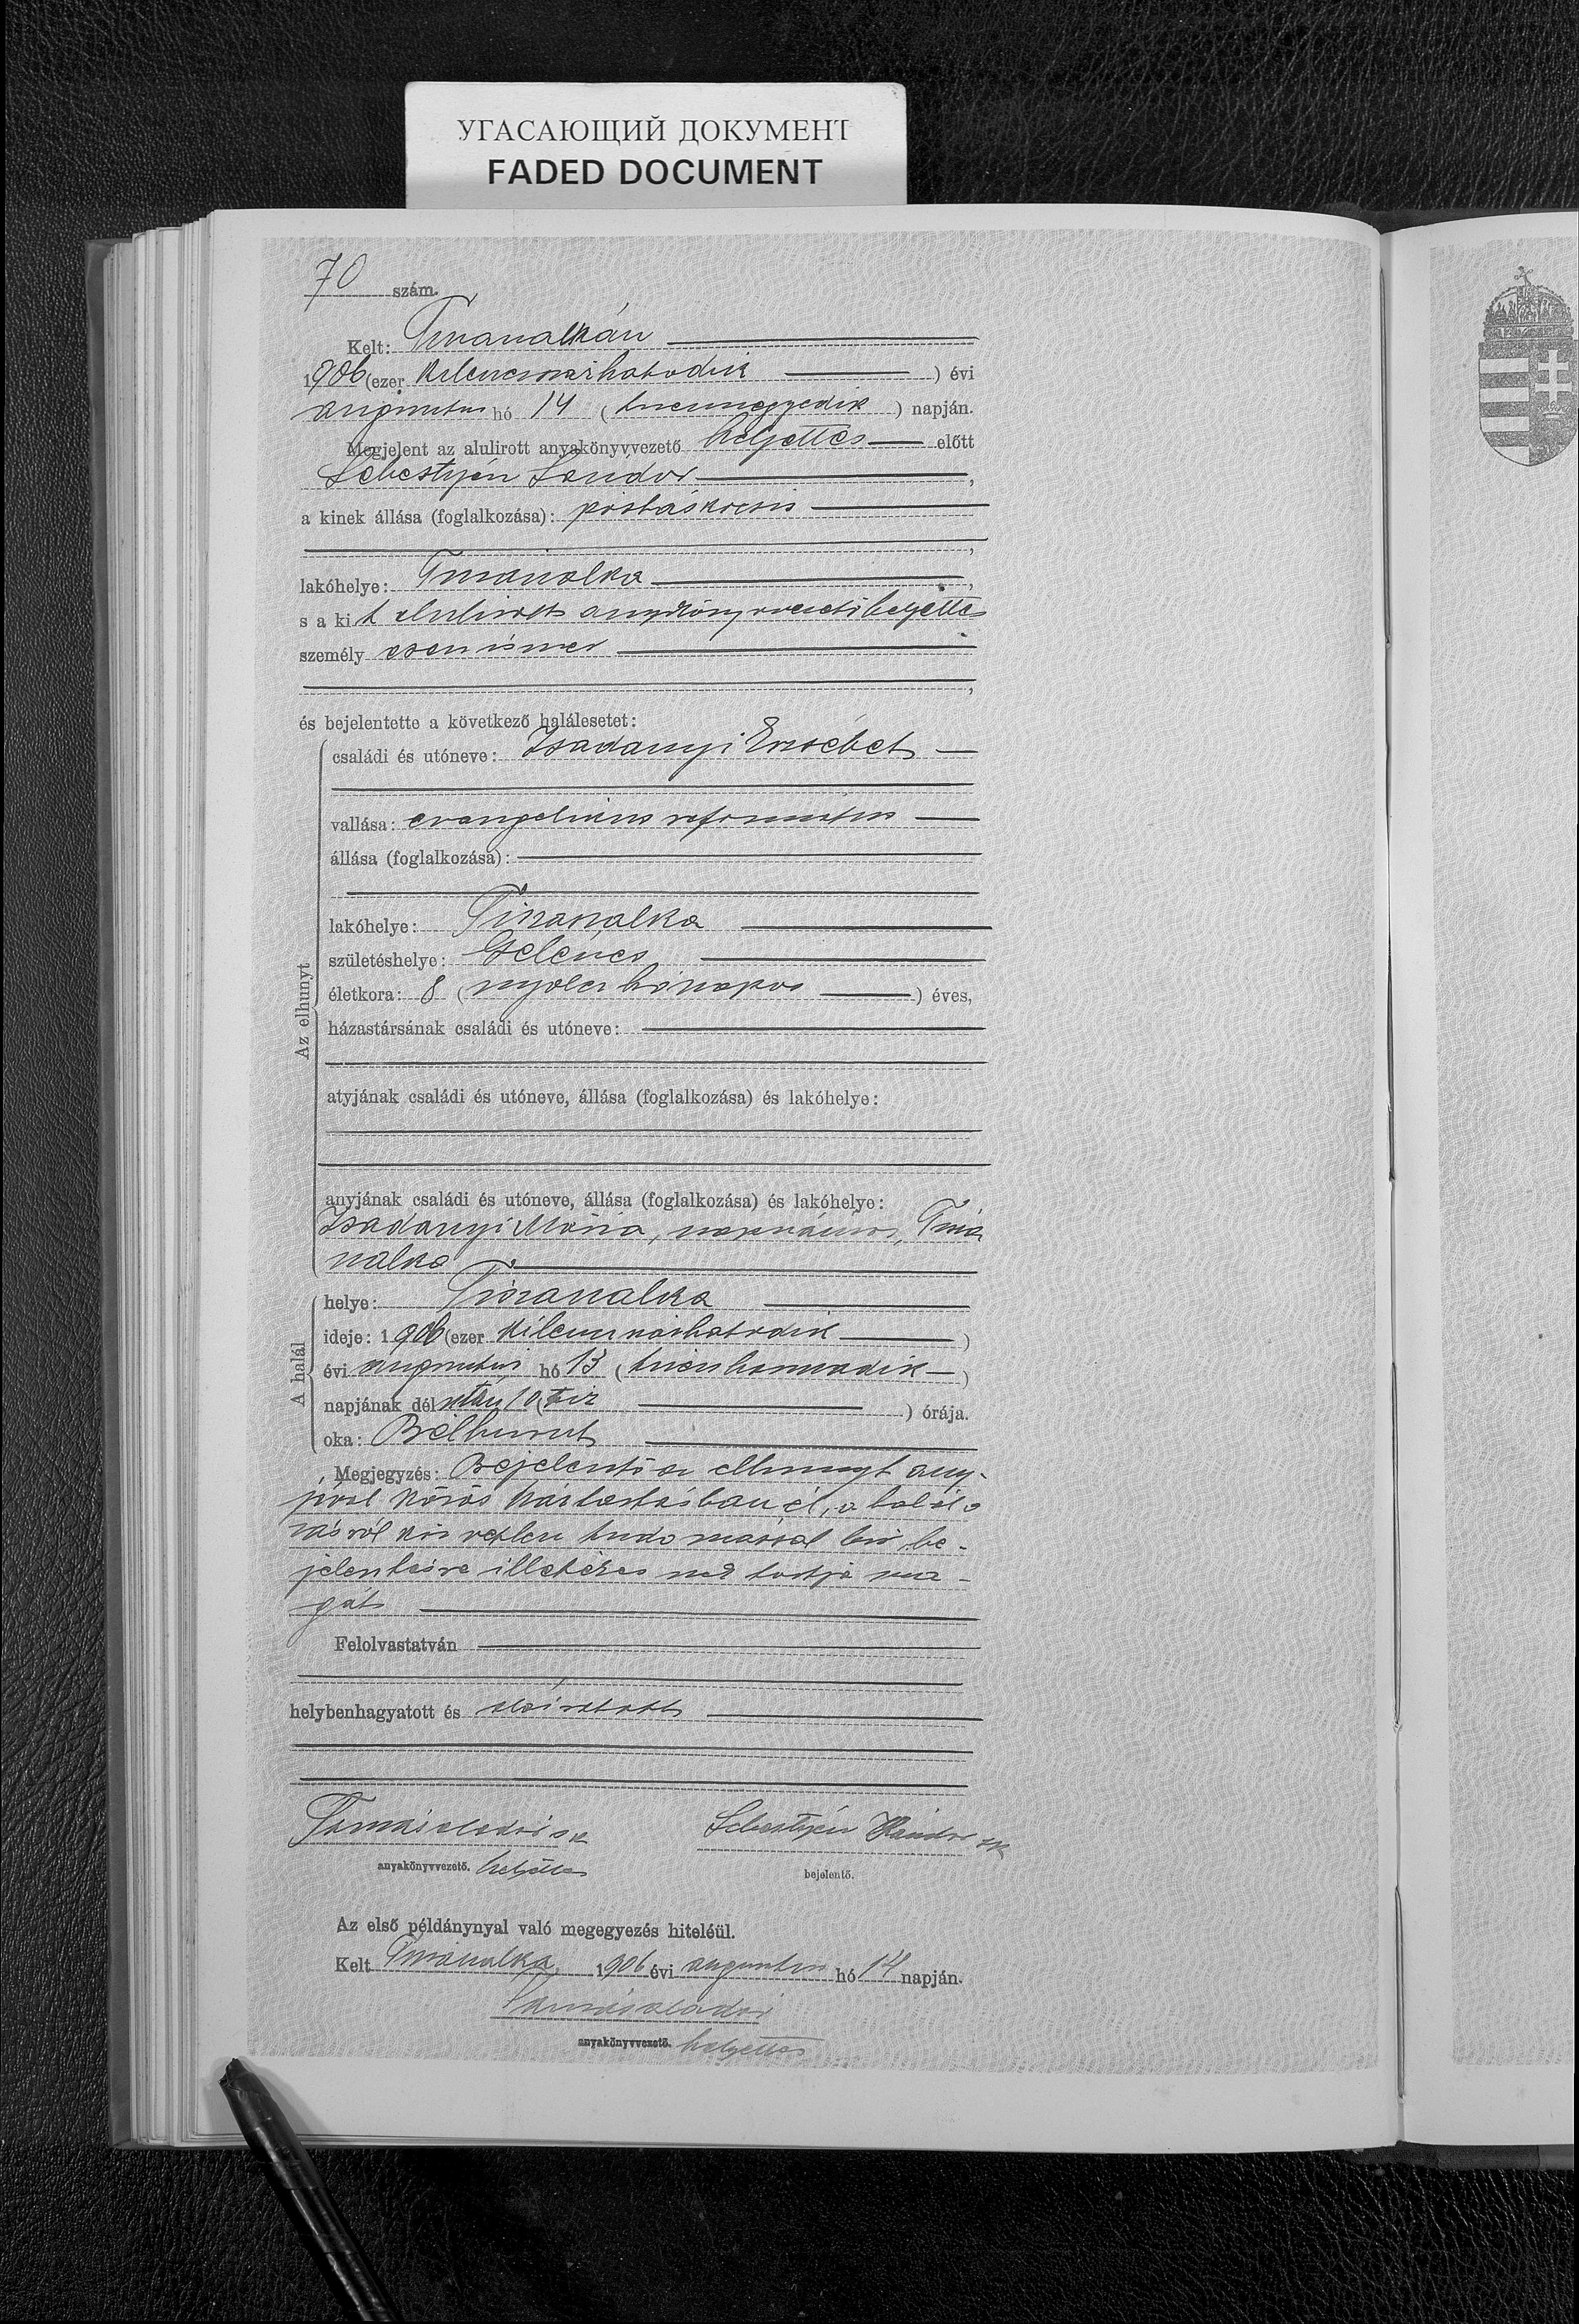 УГАСАЮЩИЙ ДОКУМЕНТ
FADED DOCUMENT
70 szám.
Kelt: Tiszanánán
1906 (ezer kilenczszázhatodik) évi
augusztus hó 14 (tizennegyedik) napján.
Megjelent az alulirott anyakönyvvezető helyettes előtt
Sebestyén Sándor,
a kinek állása (foglalkozása): postáskocsis
,
lakóhelye:
s a kit alulirott anyakönyvvezető helyettes
személyesen ismer
,
és bejelentette a következő halálesetet:
Az elhunyt
családi és utóneve: Zsadanyi Erzsébet
vallása: evangelikus református
állása (foglalkozása):
lakóhelye:
születéshelye: Gelénes
életkora: 8 (nyolcz hónapos) éves,
házastársának családi és utóneve:
atyjának családi és utóneve, állása (foglalkozása) és lakóhelye:
anyjának családi és utóneve, állása (foglalkozása) és lakóhelye:
Zsadanyi Mária, napszámos,
A halál
helye:
ideje: 1906 (ezer kilenczszázhatodik)
évi augusztus hó 13 (tizenharmadik)
napjának délután 10 (tiz) órája.
oka: Bélhurut
Megjegyzés: Bejelentő az elhunyt any-
jával közös háztartásban él, a halálo
zásról közvetlen tudomással bir, be-
jelentésre illetékes
gát
Felolvastatván
helybenhagyatott és aláiratott
Tamás Aladár sk
Sebestyén Sándor sk
anyakönyvvezető. helyettes
bejelentő.
Az első példánynyal való megegyezés hiteléül.
Kelt 1906 évi augusztus hó 14 napján.
Tamás Aladár
anyakönyvvezető. helyettes